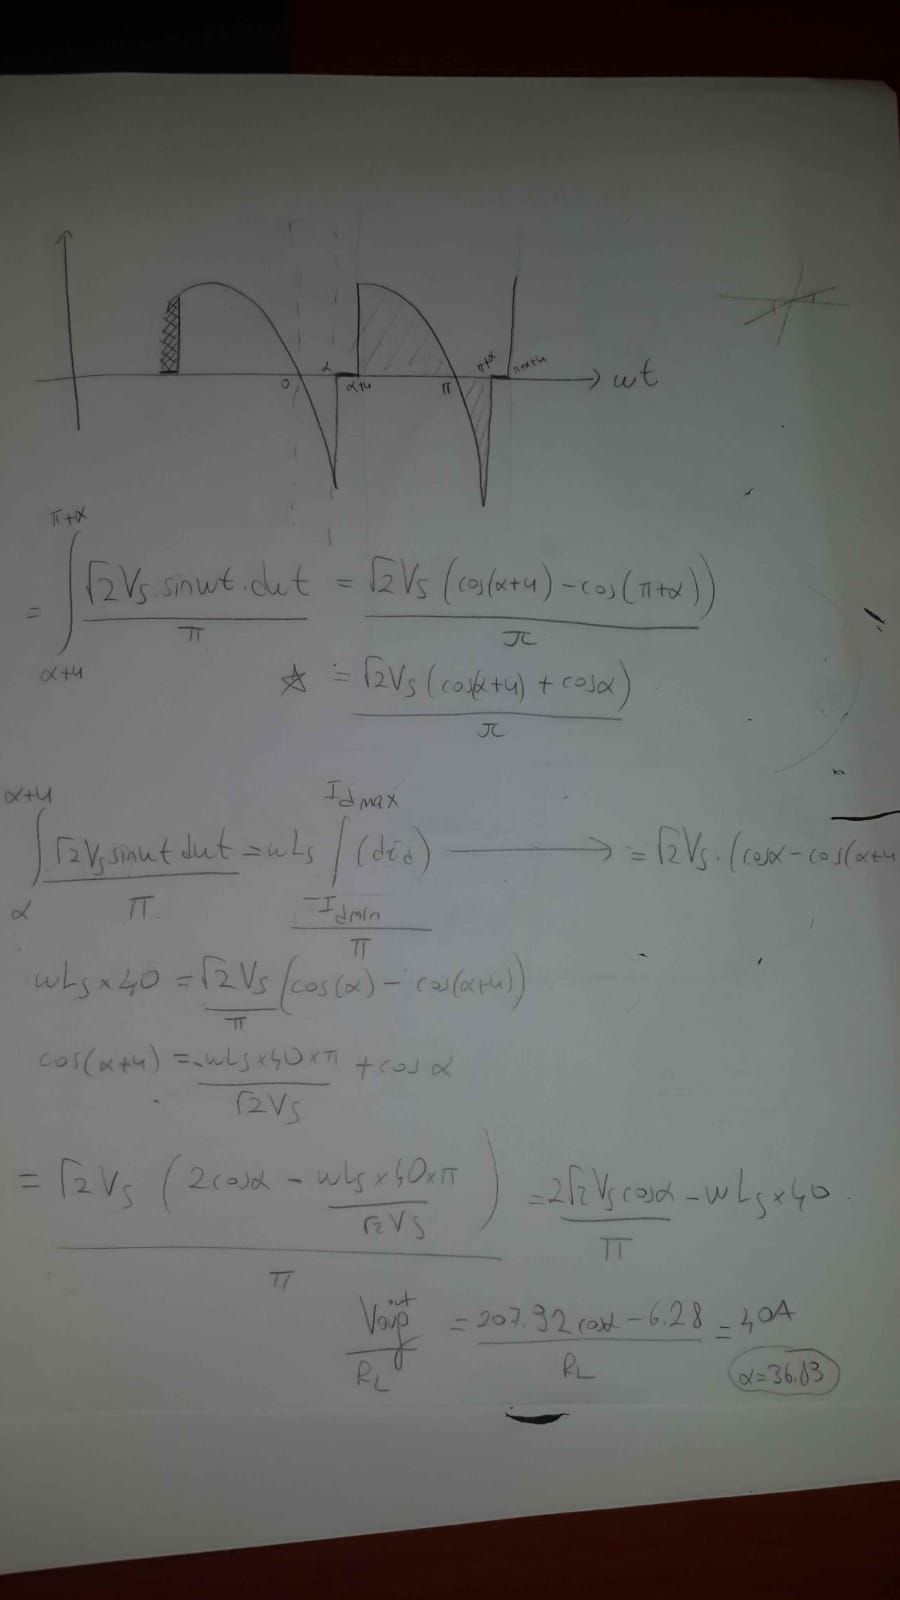 0 α α+u π π+α π+α+u ωt
= ∫_{α+u}^{π+α} √2Vs.sinωt.dωt / π = √2Vs (cos(α+u) - cos(π+α)) / π
☆ = √2Vs (cos(α+u) + cosα) / π
∫_{α}^{α+u} √2Vs sinωt dωt / π = ωLs ∫_{-Idmin}^{Idmax} (did) / π ⟶ = √2Vs.(cosα - cos(α+u
ωLs×40 = √2Vs / π (cos(α) - cos(α+u))
cos(α+u) = -ωLs×40×π / √2Vs + cosα
= √2Vs (2cosα - ωLs×40×π / √2Vs) / π = 2√2Vs cosα / π - ωLs×40
Vavg^out / RL = 207.92 cosα - 6.28 / RL = 40A
α=36.83